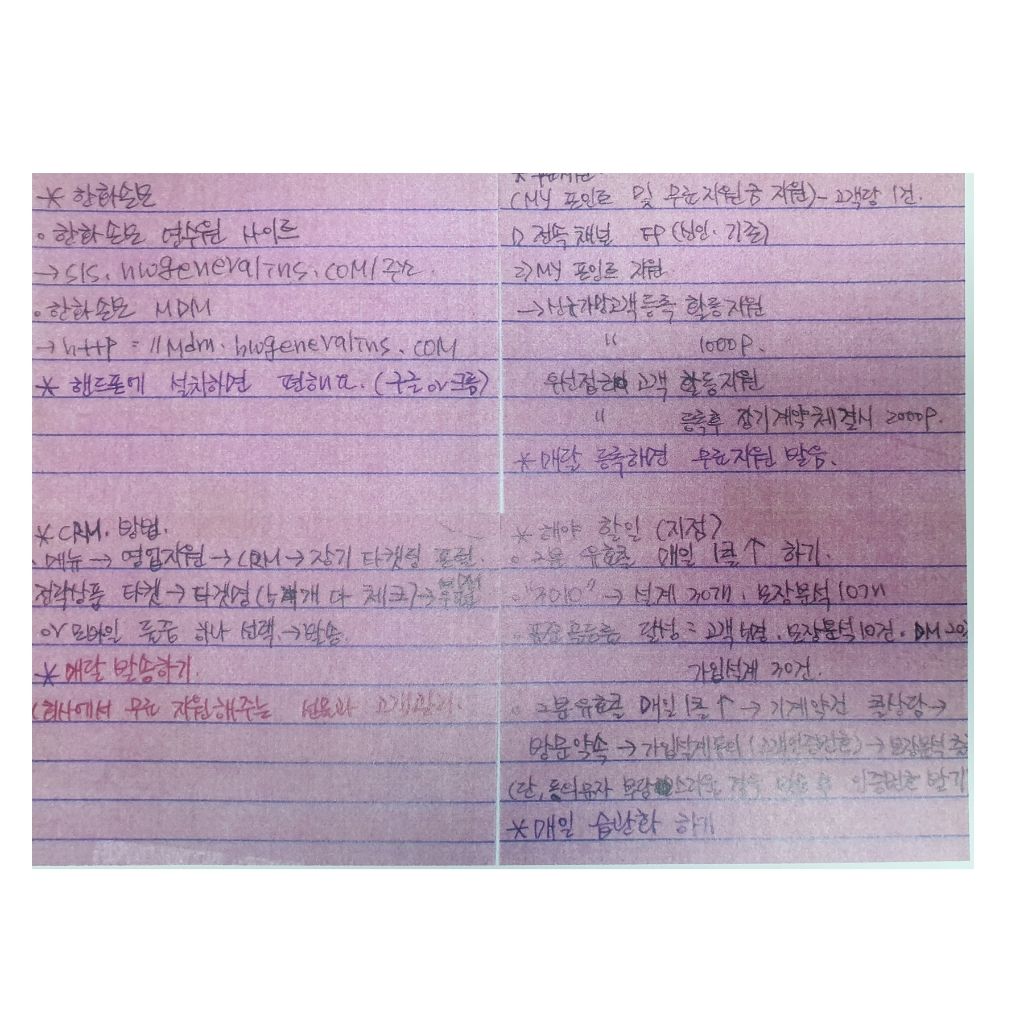 * 한화손보
o 한화손보 연수원 사이트
→ sis.hwgeneralins.com/주소.
o 한화손보 MDM
→ http = //Mdm.hwgeneralins.com
* 핸드폰에 설치하면 편해요. (구글 or 크롬)
(MY 포인트 및 무료지원금 지원) - 고객당 1건.
1) 전속채널 FP (신인·기존)
2) MY 포인트 지원
→ 신규가망고객등록 활동지원
" 1000P.
우선접촉 고객 활동지원
" 등록후 장기계약체결시 2000P.
* 매달 등록하면 무료지원 받음.
* CRM. 방법.
· 메뉴 → 영업지원 → CRM → 장기 타켓팅 포털.
전략상품 타켓 → 타겟명 ( 개 다 체크) →
or 모바일 하나 선택. → 발송.
* 매달 발송하기.
(회사에서 무료 지원해주는 고객관리.
* 해야 할일 (지점)
o 3분 유효콜 매일 1콜 ↑ 하기.
o "3010" → 설계 30개. 보장분석 10개
달성 = 고객 . 보장분석 10건. DM 20
가입설계 30건.
o 3분유효콜 매일 1콜 ↑ → 기계약건 콜상담 →
방문약속 → 가입설계동의 (고객인증번호) → 보장분석
(단, 동의유자 부담스러울 경우 인증번호 받기
* 매일 습관화 하기